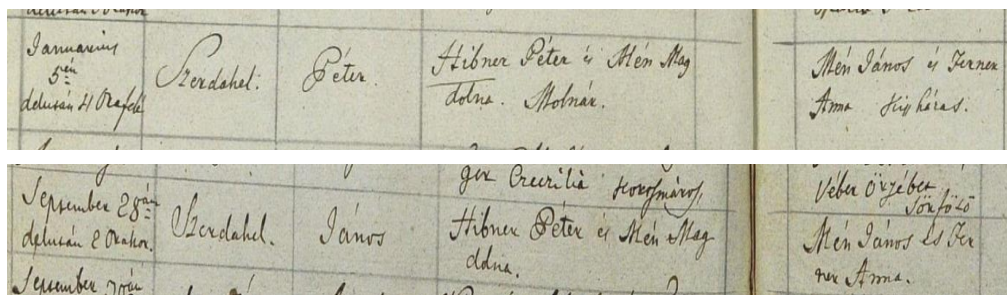 Januarius 5én délután 4 Orafelé
Szerdahel.
Péter.
Hibner Péter és Mén Mag
dolna. Molnár.
Mén János és Ferner
Anna
ger Czeczilia
Véber Örzébet
September 28án
délután 2 Orakor.
Szerdahel.
János
Hibner Péter és Mén Mag
dolna.
Mén János és Fer
ner Anna.
September